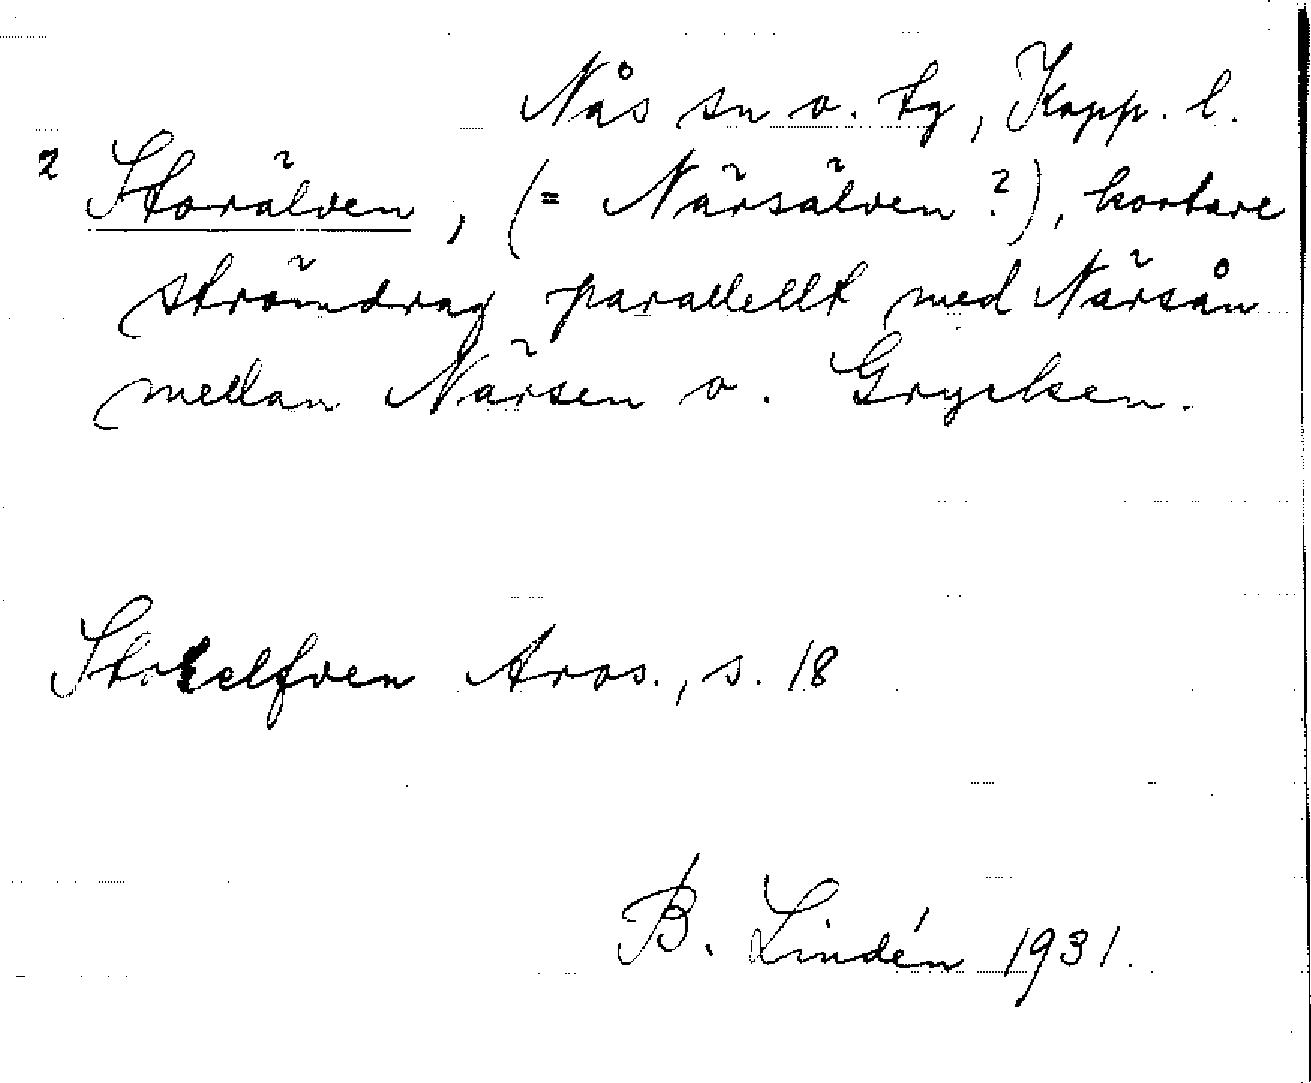 Nås sn o. tg, Kopp. l.
2 Storälven, (= Närsälven ?), kortare
strömdrag parallellt med Närsån
mellan Närsen o. Grycken.
Storelfven Aros., s. 18
B. Lindén 1931.